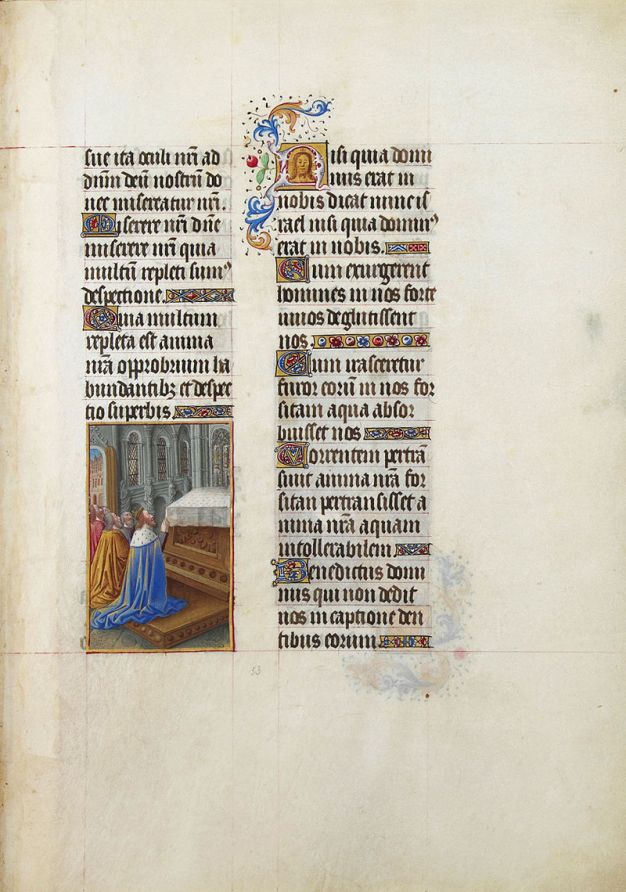 sue ita oculi nr̄i ad
dn̄m deū nostrū do
nec misereatur nr̄i.
Miserere nr̄i dn̄e
miserere nr̄i quia
multū repleti sumꝰ
despectione.
Quia multum
repleta est anima
nr̄a opprobrium ha
bundantibꝫ et despec
tio superbis
Nisi quia domi
nus erat in
nobis dicat nunc is
rael nisi quia dominꝰ
erat in nobis.
Cum exurgerent
homines in nos forte
uiuos deglutissent
nos.
Cum irasceretur
furor eorū in nos for
sitam aqua absor
buisset nos
Torrentem pertrā
siuit anima nr̄a for
sitan pertransisset a
nima nr̄a aquam
intollerabilem
Benedictus domi
nus qui non dedit
nos in captione den
tibus eorum.
53